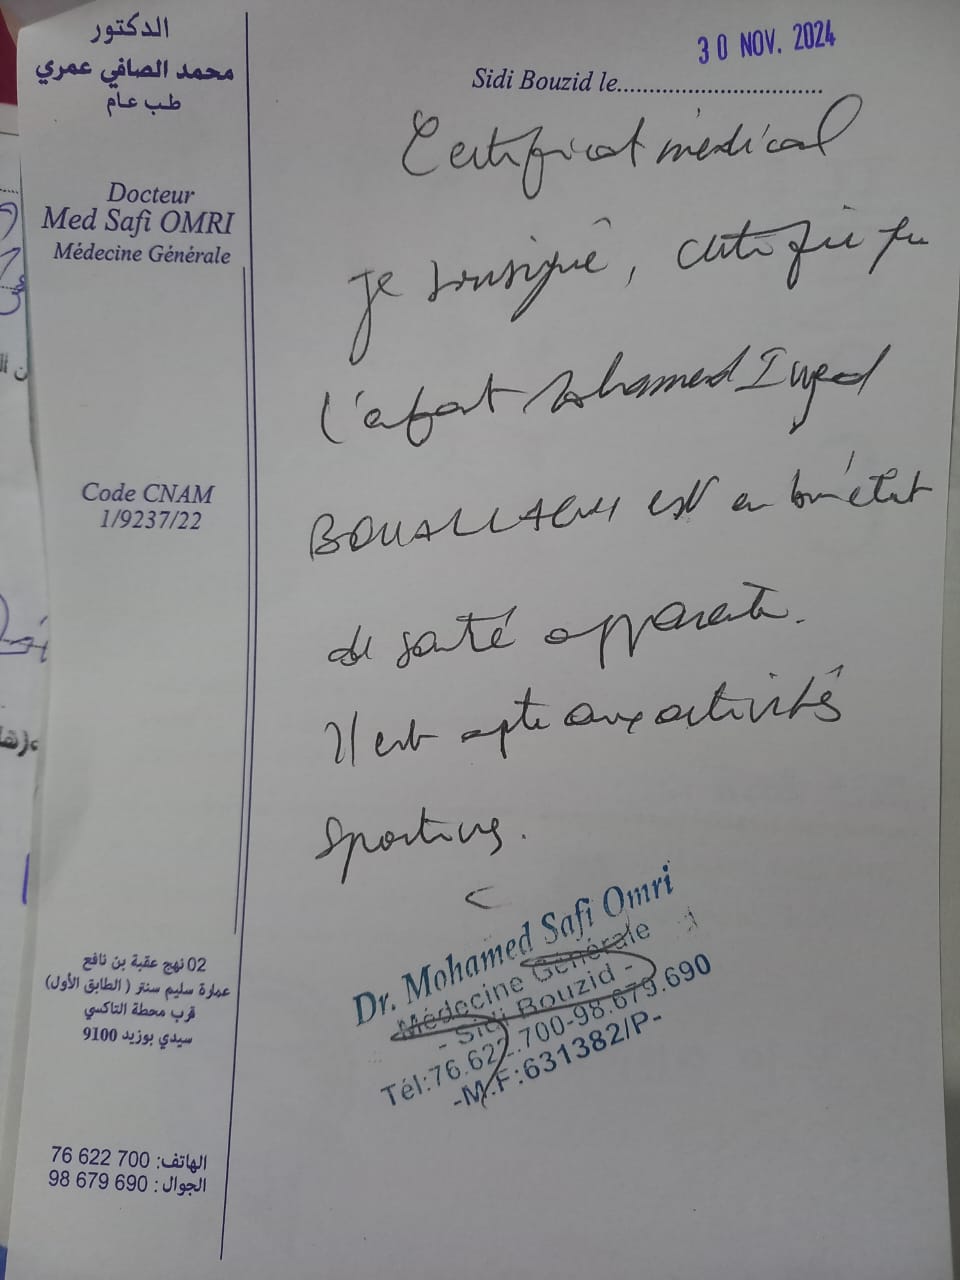 الدكتور
محمد الصافي عمري
طب عام
Docteur
Med Safi OMRI
Médecine Générale
Code CNAM
1/9237/22
02 نهج عقبة بن نافع
عمارة سليم سنتر ( الطابق الأول)
قرب محطة التاكسي
سيدي بوزيد 9100
الهاتف: 700 622 76
الجوال : 690 679 98
30 NOV. 2024
Sidi Bouzid le..............................
Certificat médical
Je soussigné, certifie que
l'enfant Mohamed Iyed
est en bon état
de santé apparente.
Il est apte aux activités
sportives.
Dr. Mohamed Safi Omri
Médecine Générale
- Sidi Bouzid -
Tél:76.622.700-98.679.690
-M.F:631382/P-